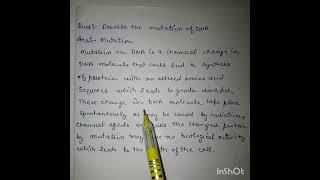 Ques:- Describe the mutation of DNA
Ans:- Mutation
Mutation in DNA is a chemical change in
DNA molecule that could lead to synthesis
of protein with an altered amino acid
sequence which leads to genetic disorder.
These change in DNA molecule take place
spontaneously or may be caused by radiation,
chemical agents or viruses. The changed protein
by mutation may have no biological activity
which leads to the death of the cell.
InShOt